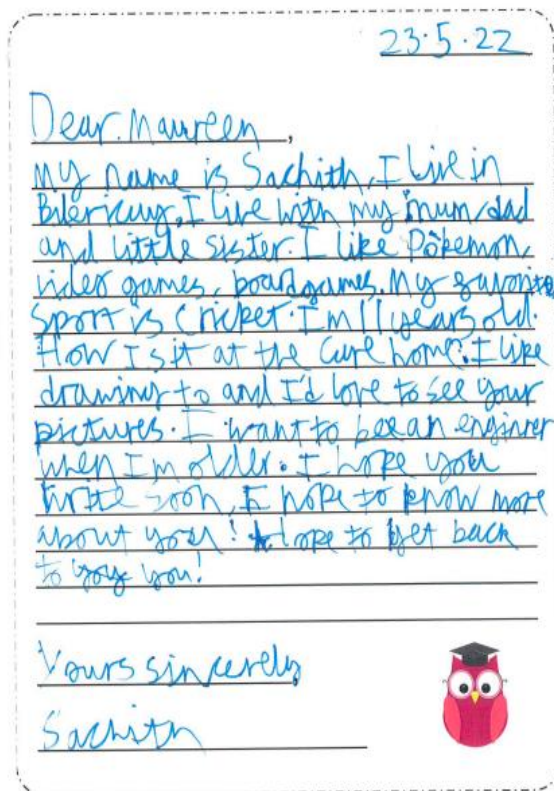 23.5.22
Dear. Maureen,
My name is Sachith, I live in
Bilericay, I live with my mum, dad
and little sister. I like Pokemon,
video games, boardgames. My favorite
sport is cricket. I'm 11 years old.
How Is it at the Care home? I like
drawing to and I'd love to see your
pictures. I want to bee an enginer
when I'm older. I hope you
write soon, I hope to know more
about you! hope to get back
to you you!
Yours sincerely
Sachith